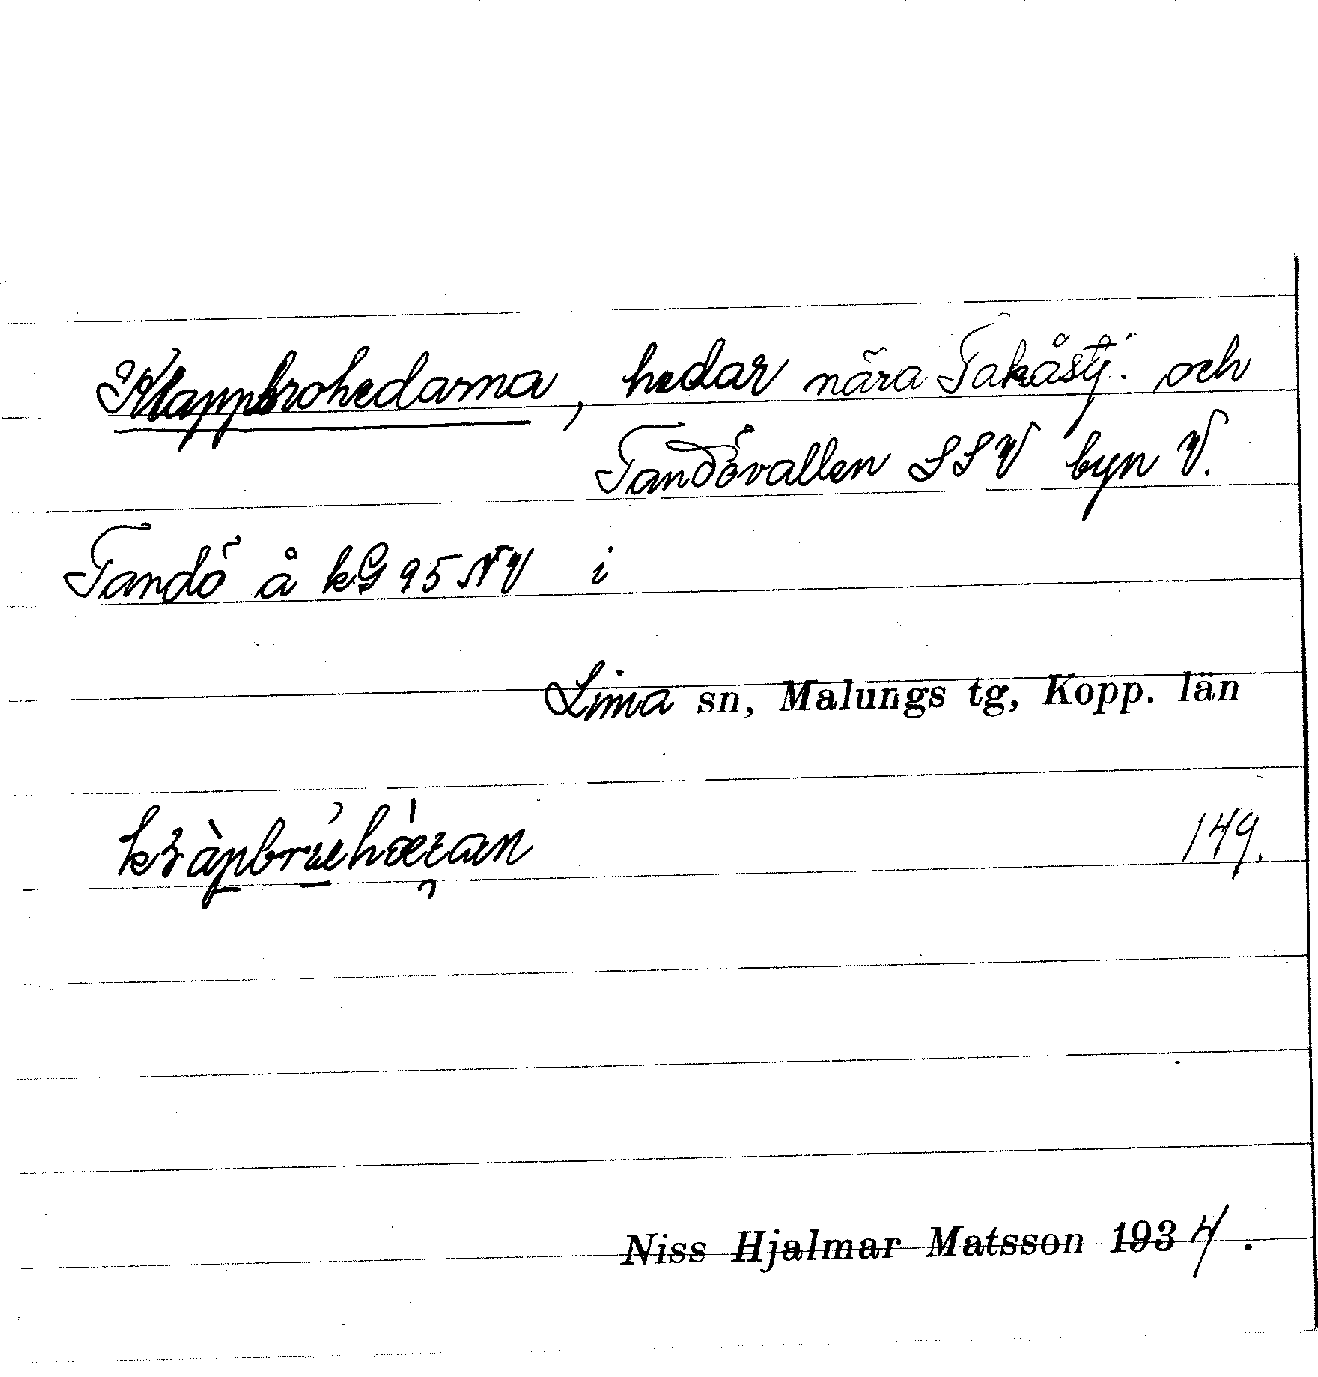 Klappbrohedarna, hedar nära Takåstj. och
Tandövallen SSV byn V.
Tandö å kG 95 NV i
Lima sn, Malungs tg, Kopp. län
149.
Niss Hjalmar Matsson 1934.